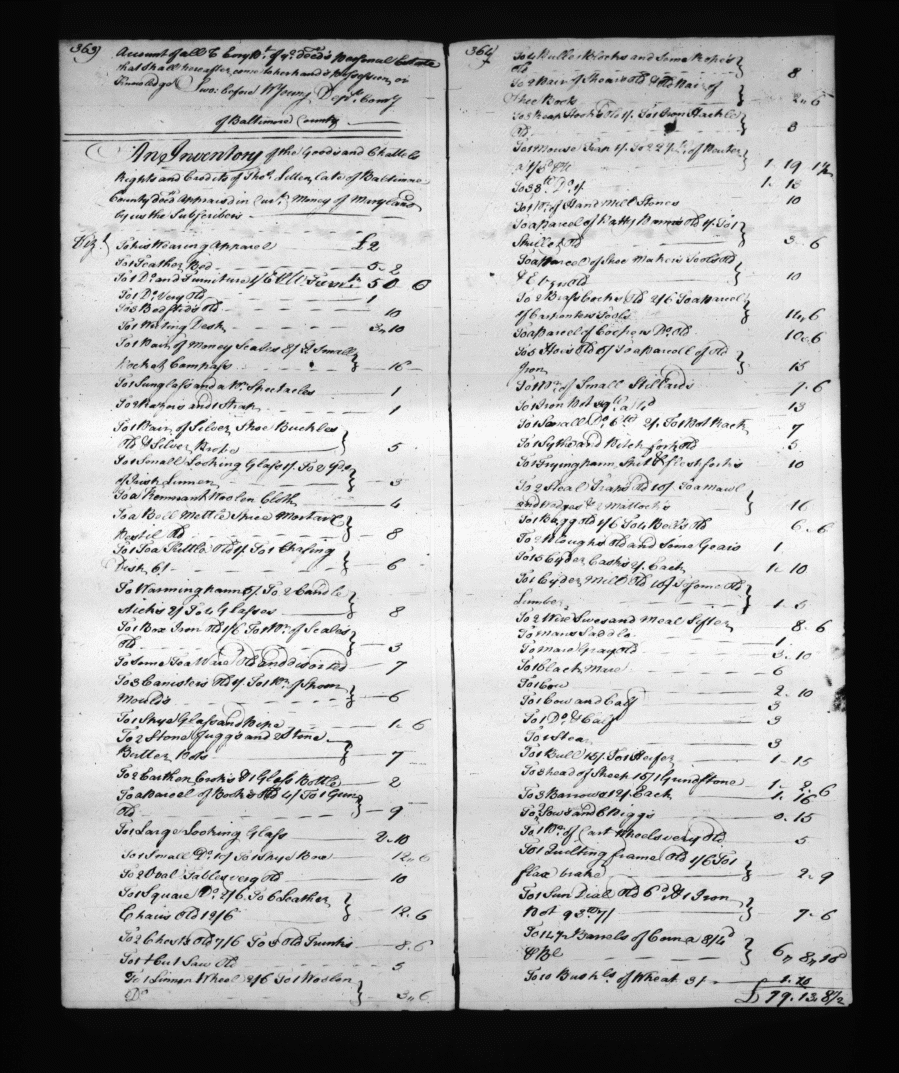 363)
Account of all & Every Pt. of ye. Deceds. Personal Estate
that shall hereafter come to her hands Possession, or
Knowledge Swo: before W Young Depty Comry
of Baltimore County
An Inventory of the Goods and Chattels
Rights and Credits of Thos. late of Baltimore
County Deced Appraised in Curt. Money of Maryland
by us the Subscribers
Vizt. To his Wearing Apparel £2
To 1 Feather Bed 5 2
To 1 Do. and Furniture 5 0 0
To 1 Do. Very Old 1
To 3 Bedsteds Old 10
To 1 Writing Desk 3 10
To 1 Pair of Money Scales 8/ & Small
Pocket Compass 16
To 1 Sunglass and a Pr. Spectacles 1
To 2 Razors and 1 Strap 1
To 1 Pair of Silver Shoe Buckles
Old & Silver 5
To 1 Small Looking Glass 1/. To 2 Yds
of Irish Linnen 3
To a Remnant Woolen Cloth 4
To a Bell Mettle Spice Mortar &
Pestil Old 8
To 1 Tea Kettle Old 1/. To 1 Chafing
Dish 6/ 6
To Warming pann 5/. To 2 Candle
sticks 2/ To 4 Glasses 8
To 1 Box Iron Old 1/6 To 1 Pr. of Scales
Old 3
To Some Tea Ware Old and 7
To 3 Canisters Old 1/. To 1 Pr. of Spoon
Moulds 6
To 1 Spye Glass and Pipe 1 6
To 2 Stone Juggs and 2 Stone
Butter Pots 7
To 2 Earthen & 1 Glass Bottle 2
To a Parcel of Books Old 4/ To 1 Gun
Old 9
To 1 Large Looking Glass 2 10
To 1 Small Do. 10/ To 1 Box 12 6
To 2 Oval Tables very Old 10
To 1 Square Do. 2/6 To 6 Leather
Chairs Old 12/6 12 6
To 2 Chests Old 7/6 To 3 Old Trunks 8 6
To 1 + Cut Saw Old 5
To 1 Linnen Wheel 2/6 To 1 Woolen
Do. 3 6
364
To 4 Pulley Blocks and Some Ropes
Old 8
To 2 Pair of Shears Old & Old Pair of
Shee 2 6
To 3 Reap Hooks Old 1/. To 1 Iron Hackle
Old 8
To 1 Mouse Trap 1/. To 22 1/2 of Pewter
1 19 4 1/2
To 38 lb Do. 1 18
To 1 Pr. of Hand Mill Stones 10
To a parcel of Old 1/. To 1
Skillet Old 3 6
To a Parcel of Shoe Makers Tools Old
10
To 2 Brass Cocks Old 2/6 To a Parcel
of Carpenters Tools 11 6
To a Parcel of Coopers Do. Old 10 6
To 3 Hows Old 5/ To a Parcell of Old
Iron 15
To 1 Pr. of Small Stillards 7 6
To 1 Iron Pot a 4d 13
To 1 Small Do. To 1 Pot Rack 7
To 1 Sythe and Pitch fork Old 5
To 1 Frying pann, Spit & flesh forks 10
To 2 Steal Traps Old 10/ To a Mawl
and Wedges & 2 Mattocks 16
To 1 Bagg Old 1/6 To 4 Old 6 6
To 2 Ploughs Old and Some Gears 1
To 15 Cyder Casks 2/ Each 1 10
To 1 Cyder Mill Old 10/ To Some Old
Timber 1 5
To 2 Wire Sives and Meal Sifter 8 6
To Mans Saddle 1
To Mare Gray Old 3 10
To 1 Black Mare 6
To 1 Cow 2 10
To 1 Cow and Calf 3
To 1 Do. & Calf 3
To 1 Stear 3
To 1 Bull 15/. To 1 Heifer 1 15
To 3 head of Sheep 15/ 1 Grindstone 1 2 6
To 3 Barrows 12/ Each 1 16
To 2 Sows and 6 Piggs 0 15
To 1 Pr. of Cart Wheels very Old 5
To 1 Quilting frame Old 1/6 To 1
flax brake 2 9
To 1 Sun Dial Old 6d & 1 Iron
Pot 7/ 7 6
To 14 Barrels of Corn a 8/4d
P Bl. 6 8 10d
To 10 Bushls. of Wheat 3/ 1 10
£ 79.13.8 1/2